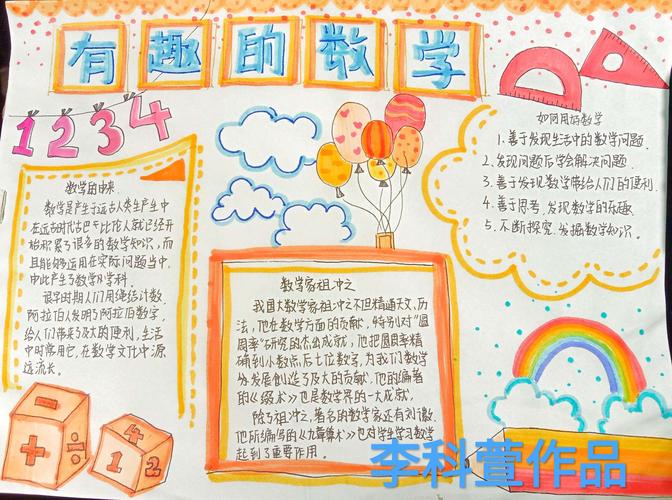 有趣的数学
1 2 3 4
数学的由来
数学是产生于远古人类生产生中
在远古时代古巴比伦人就已经开
始积累了很多的数学知识，而
且能够运用在实际问题当中.
由此产生了数学科学科.
很早时期人们用绳结计数.
阿拉伯人发明了阿拉伯数字，
给人们带来了及大的便利，生活
中时常用它，在数学文化中源
远流长。
数学家祖冲之
我国大数学家祖冲之不但精通天文、历
法，他在数学方面的贡献，特别对“圆
周率”研究的杰出成就，他把圆周率精
确到小数点后七位数字，为我们数学
发展创造了及大的贡献.他的编著
的《缀术》也是数学界的一大成就.
除了祖冲之，著名的数学家还有刘徽.
他所编写的《九章算术》也对学生学习数学
起到了重要作用。
如何用好数学
1.善于发现生活中的数学问题.
2.发现问题后学会解决问题.
3.善于发现数学带给人们的便利.
4.善于思考，发现数学的乐趣.
5.不断探究，发掘数学知识。
+ − ÷
4 1 2
李科萱作品